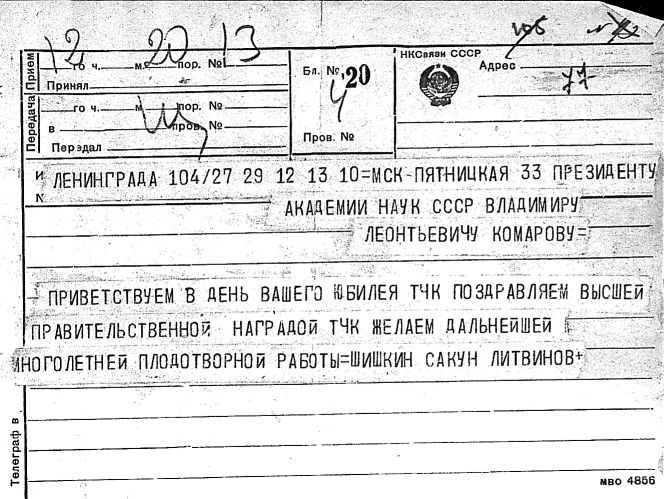 105
12 го ч. 20 м. пор. № 13
Прием
Принял
Бл. № 20
4
НКСвязи СССР
Адрес
77
Передача
го ч. м. пор. №
в пров. №
Передал
Пров. №
ИЗ ЛЕНИНГРАДА 104/27 29 12 13 10=МСК-ПЯТНИЦКАЯ 33 ПРЕЗИДЕНТУ
АКАДЕМИИ НАУК СССР ВЛАДИМИРУ
ЛЕОНТЬЕВИЧУ КОМАРОВУ=
ПРИВЕТСТВУЕМ В ДЕНЬ ВАШЕГО ЮБИЛЕЯ ТЧК ПОЗДРАВЛЯЕМ ВЫСШЕЙ
ПРАВИТЕЛЬСТВЕННОЙ НАГРАДОЙ ТЧК ЖЕЛАЕМ ДАЛЬНЕЙШЕЙ
МНОГОЛЕТНЕЙ ПЛОДОТВОРНОЙ РАБОТЫ=ШИШКИН САКУН ЛИТВИНОВ+
Телеграф в
МВО 4856